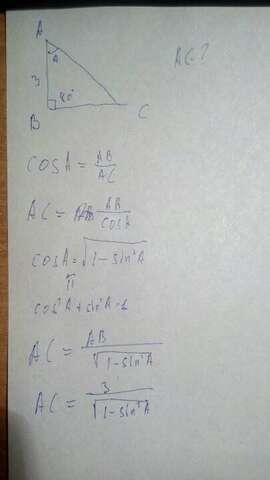 A
AC-?
A
3
90°
B
C
cosA = AB/AC
AC = AB/cosA
cosA = √1-sin²A
cos²A + sin²A = 1
AC = AB/√1-sin²A
AC = 3/√1-sin²A